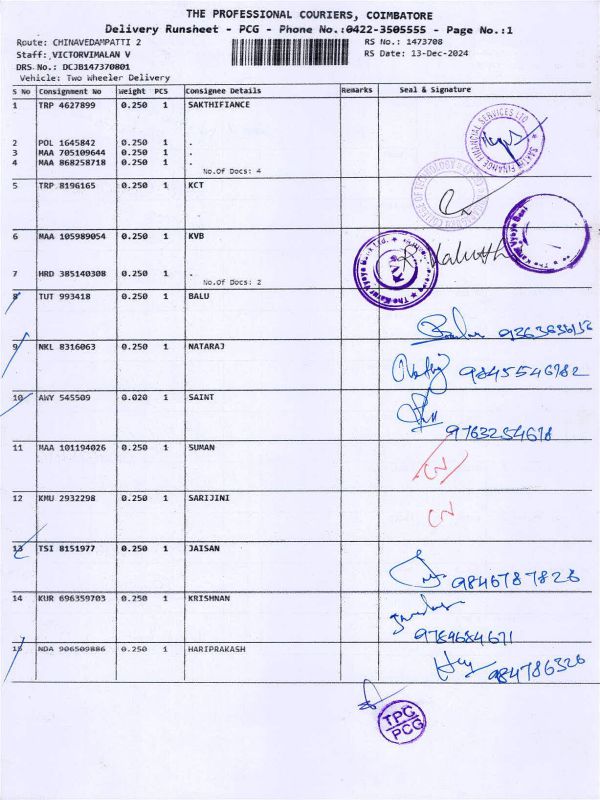 THE PROFESSIONAL COURIERS, COIMBATORE
Delivery Runsheet - PCG - Phone No.:0422-3505555 - Page No.:1
Route: CHINAVEDAMPATTI 2 RS No.: 1473708
Staff: VICTORVIMALAN V RS Date: 13-Dec-2024
DRS No.: DCJB147370801
Vehicle: Two Wheeler Delivery
S No Consignment No Weight PCS Consignee Details Remarks Seal & Signature
1 TRP 4627899 0.250 1 SAKTHIFIANCE
2 POL 1645842 0.250 1 .
3 MAA 705109644 0.250 1 .
4 MAA 868258718 0.250 1 .
No.Of Docs: 4
5 TRP 8196165 0.250 1 KCT
6 MAA 105989054 0.250 1 KVB
7 HRD 385140308 0.250 1 .
No.Of Docs: 2
8 TUT 993418 0.250 1 BALU
9 NKL 8316063 0.250 1 NATARAJ
9845546782
10 AWY 545509 0.020 1 SAINT
9763254678
11 MAA 101194026 0.250 1 SUMAN
12 KMU 2932298 0.250 1 SARIJINI
13 TSI 8151977 0.250 1 JAISAN
9846787826
14 KUR 696359703 0.250 1 KRISHNAN
9789684671
15 NDA 906509886 0.250 1 HARIPRAKASH
984786326
TPC
PCG